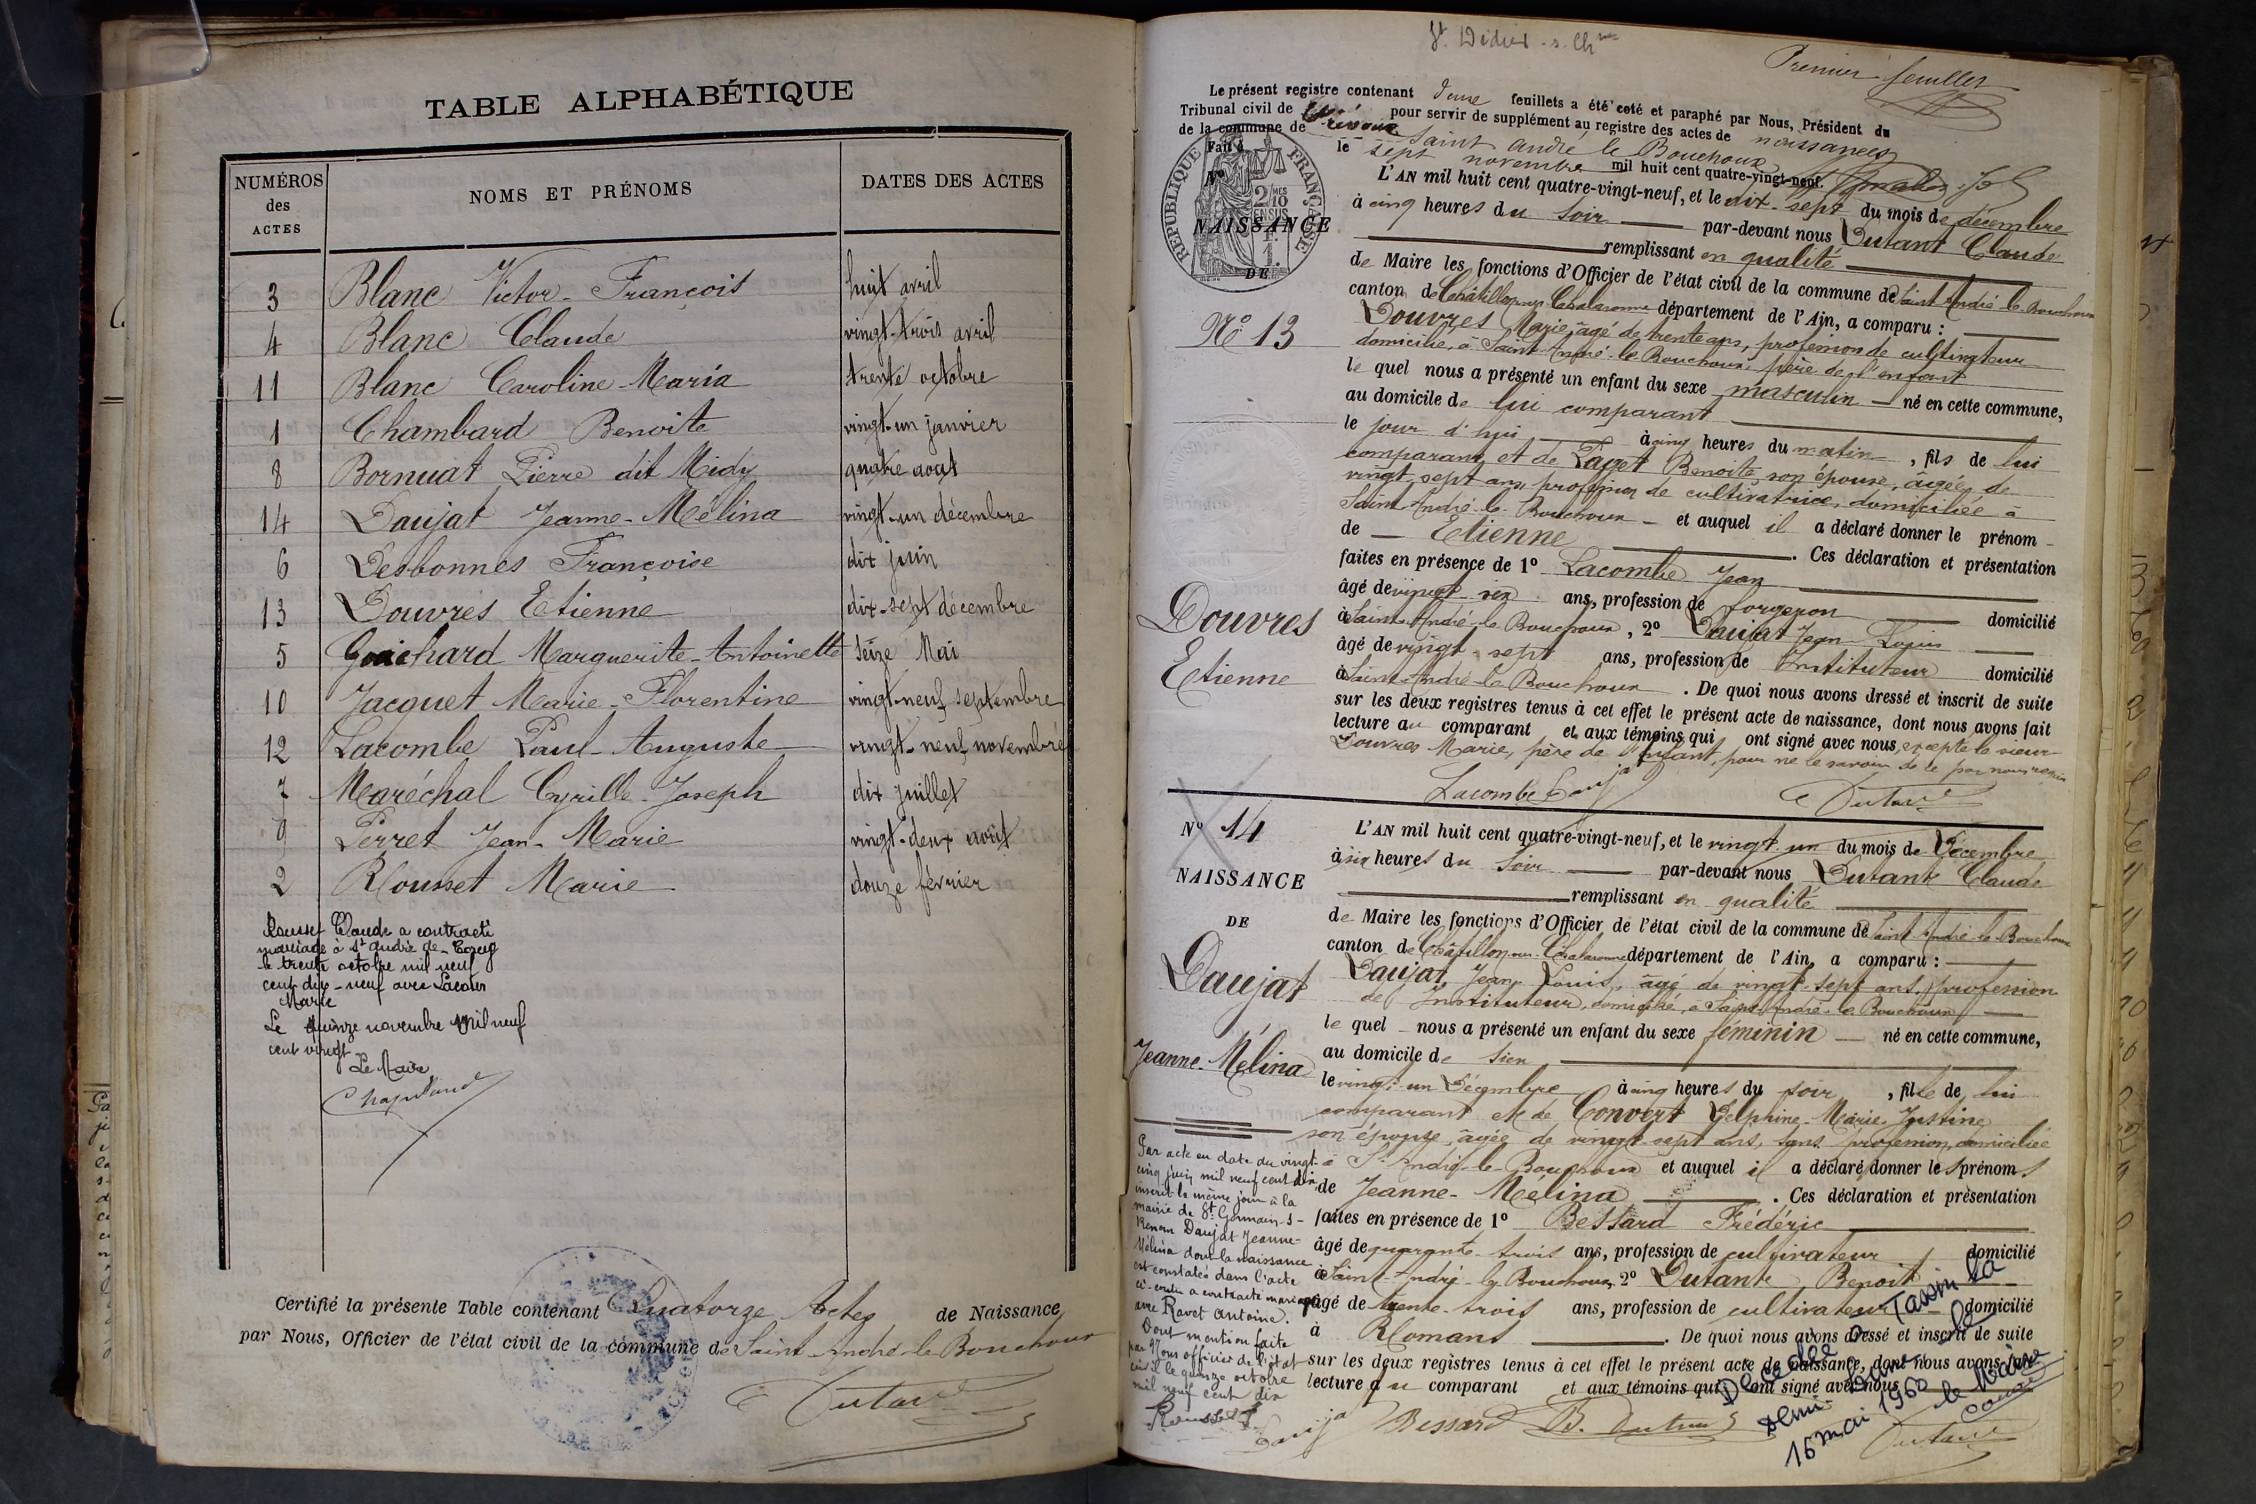 TABLE ALPHABÉTIQUE
NUMÉROS des ACTES
NOMS ET PRÉNOMS
DATES DES ACTES
3 Blanc Victor-François huit avril
4 Blanc Claude vingt-trois avril
11 Blanc Caroline-Maria trente octobre
1 Chambard Benoite vingt-un janvier
8 Bornuat Pierre dit Midy quatre août
14 Daujat Jeanne-Mélina vingt-un décembre
6 Desbonnes Françoise dix juin
13 Douvres Etienne dix-sept décembre
5 Guichard Marguerite-Antoinette Seize Mai
10 Jacquet Marie-Florentine vingt-neuf septembre
12 Lacombe Paul-Auguste vingt-neuf novembre
7 Maréchal Cyrille-Joseph dix juillet
9 Perret Jean-Marie vingt-deux août
2 Rousset Marie douze février
Rousset Claude a contracté
mariage à St André de-Corcy
le trente octobre mil neuf
cent dix-neuf avec Lacour
Marie
Le quinze novembre Mil neuf
cent vingt
Le Maire
Certifié la présente Table contenant Quatorze Actes de Naissance
par Nous, Officier de l'état civil de la commune de Saint-André-le-Bouchoux
Dutant
St Didier-s-Chne
Premier feuillet
Le présent registre contenant d'une feuillets a été coté et paraphé par Nous, Président du
Tribunal civil de Trévoux pour servir de supplément au registre des actes de naissances
de la commune de Saint André le Bouchoux
Fait à le sept novembre mil huit cent quatre-vingt-neuf.
RÉPUBLIQUE FRANÇAISE
2/10
EN SUS
Nº
NAISSANCE
DE
Nº 13
Douvres
Etienne
L'AN mil huit cent quatre-vingt-neuf, et le dix-sept du mois de décembre
à cinq heures du Soir par-devant nous Dutant Claude
remplissant en qualité
de Maire les fonctions d'Officier de l'état civil de la commune de Saint-André-le-Bouchoux
canton de Châtillon-sur-Chalaronne département de l'Ain, a comparu :
Douvres Marie, âgé de trente ans, profession de cultivateur
domicilié, à Saint-André-le-Bouchoux, père de l'enfant
le quel nous a présenté un enfant du sexe masculin né en cette commune,
au domicile de lui comparant
le jour d'hui à cinq heures du matin, fils de lui
comparant et de Paget Benoite, son épouse, âgée de
vingt-sept ans, profession de cultivatrice, domiciliée à
Saint-André-le-Bouchoux et auquel il a déclaré donner le prénom
de Etienne. Ces déclaration et présentation
faites en présence de 1º Lacombe Jean
âgé de vingt-six ans, profession de forgeron domicilié
à Saint-André-le-Bouchoux, 2º Daujat Jean-Louis
âgé de vingt-sept ans, profession de Instituteur domicilié
à Saint-André-le-Bouchoux. De quoi nous avons dressé et inscrit de suite
sur les deux registres tenus à cet effet le présent acte de naissance, dont nous avons fait
lecture au comparant et aux témoins qui ont signé avec nous, excepté le sieur
Douvres Marie, père de l'enfant, pour ne le savoir de ce par nous requis
Lacombe Daujat Dutant
Nº 14
NAISSANCE
DE
Daujat
Jeanne-Mélina
L'AN mil huit cent quatre-vingt-neuf, et le vingt-un du mois de Décembre
à six heures du Soir par-devant nous Dutant Claude
remplissant en qualité
de Maire les fonctions d'Officier de l'état civil de la commune de Saint-André-le-Bouchoux
canton de Châtillon-sur-Chalaronne département de l'Ain, a comparu :
Daujat, Jean-Louis, âgé de vingt-sept ans, profession
de Instituteur, domicilié, à Saint-André-le-Bouchoux
le quel nous a présenté un enfant du sexe féminin né en cette commune,
au domicile de sien
le vingt-un Décembre à cinq heures du soir, fille de lui
comparant et de Convert Delphine-Marie-Justine
son épouse, âgée de vingt-sept ans, sans profession, domiciliée
à St-André-le-Bouchoux et auquel il a déclaré donner les prénoms
de Jeanne-Mélina. Ces déclaration et présentation
faites en présence de 1º Bessard Frédéric
âgé de quarante-trois ans, profession de cultivateur domicilié
à Saint-André-le-Bouchoux 2º Dutant Benoit
âgé de trente-trois ans, profession de cultivateur domicilié
à Romans. De quoi nous avons dressé et inscrit de suite
sur les deux registres tenus à cet effet le présent acte de naissance, dont nous avons fait
lecture au comparant et aux témoins qui ont signé avec nous
Daujat Bessard B. Dutant Dutant
Par acte en date du vingt-
cinq juin mil neuf cent dix
inscrit le même jour à la
mairie de St Germain-s-
Renom Daujat Jeanne-
Mélina dont la naissance
est constatée dans l'acte
ci-contre a contracté mariage
avec Ravet Antoine.
Dont mention faite
par Nous officier de l'état
civil le quinze octobre
mil neuf cent dix
Rousset
Décédée à Tassin la
Demi-Lune le
15 mai 1960
le Maire